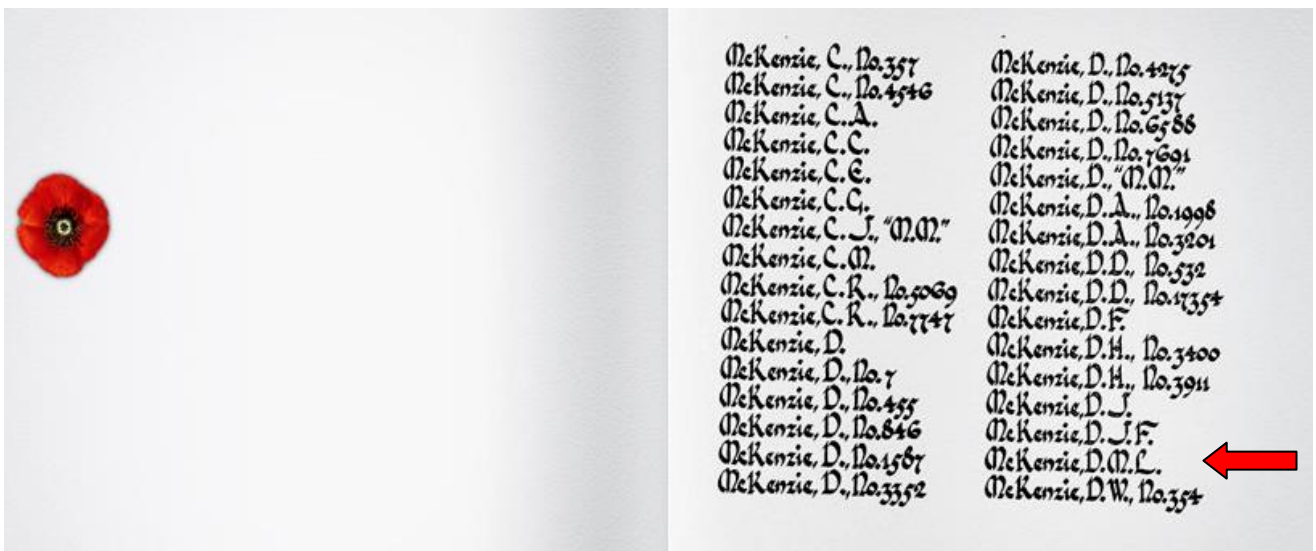 McKenzie, C., No.357
McKenzie, C., No.4546
McKenzie, C.A.
McKenzie, C.C.
McKenzie, C.E.
McKenzie, C.G.
McKenzie, C.J., "M.M."
McKenzie, C.M.
McKenzie, C.R., No.5069
McKenzie, C.R., No.7747
McKenzie, D.
McKenzie, D., No.7
McKenzie, D., No.455
McKenzie, D., No.846
McKenzie, D., No.1587
McKenzie, D., No.3352
McKenzie, D., No.4275
McKenzie, D., No.5137
McKenzie, D., No.6588
McKenzie, D., No.7691
McKenzie, D., "M.M."
McKenzie, D.A., No.1998
McKenzie, D.A., No.3201
McKenzie, D.D., No.532
McKenzie, D.D., No.17354
McKenzie, D.F.
McKenzie, D.H., No.3400
McKenzie, D.H., No.3911
McKenzie, D.J.
McKenzie, D.J.F.
McKenzie, D.M.L.
McKenzie, D.W., No.354